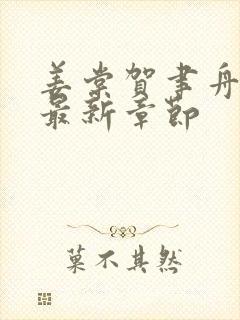 姜棠贺聿舟
最新章节
菓不其然